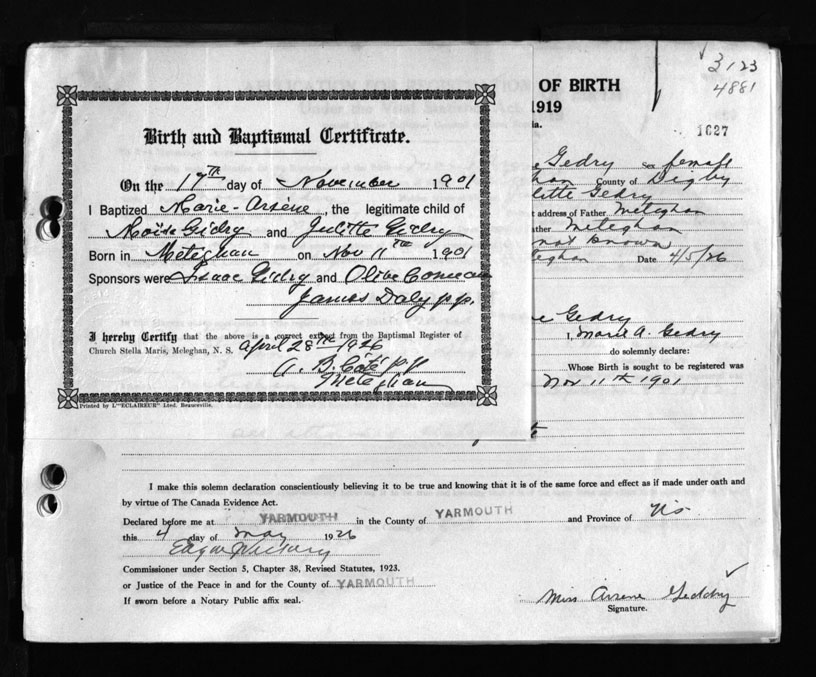 3123
4881
1627
OF BIRTH
1919
Birth and Baptismal Certificate.
On the 17TH day of November 1901
I Baptized Marie-Arsène, the legitimate child of
Moïse Gidry and Julitte Gidry
Born in Meteghan on Nov 11TH 1901
Sponsors were Isaac Gidry and Olive Comeau
James Daly p.p.
I hereby Certify that the above is a correct extract from the Baptismal Register of
Church Stella Maris, Meleghan, N. S. April 28TH 1926
A. B. Côté p.p.
Meteghan
Printed by L'"ECLAIREUR" Lted. Beauceville.
Gedry Sex female
County of Digby
Gedry
address of Father Meteghan
Meteghan
not known
Date 4/5/26
Gedry
I, Marie A. Gedry
do solemnly declare:
Whose Birth is sought to be registered was
Nov 11th 1901
I make this solemn declaration conscientiously believing it to be true and knowing that it is of the same force and effect as if made under oath and
by virtue of The Canada Evidence Act.
Declared before me at YARMOUTH in the County of YARMOUTH and Province of NS
this 4 day of May 1926
Commissioner under Section 5, Chapter 38, Revised Statutes, 1923.
or Justice of the Peace in and for the County of YARMOUTH
If sworn before a Notary Public affix seal.
Miss Arsene Geddry
Signature.